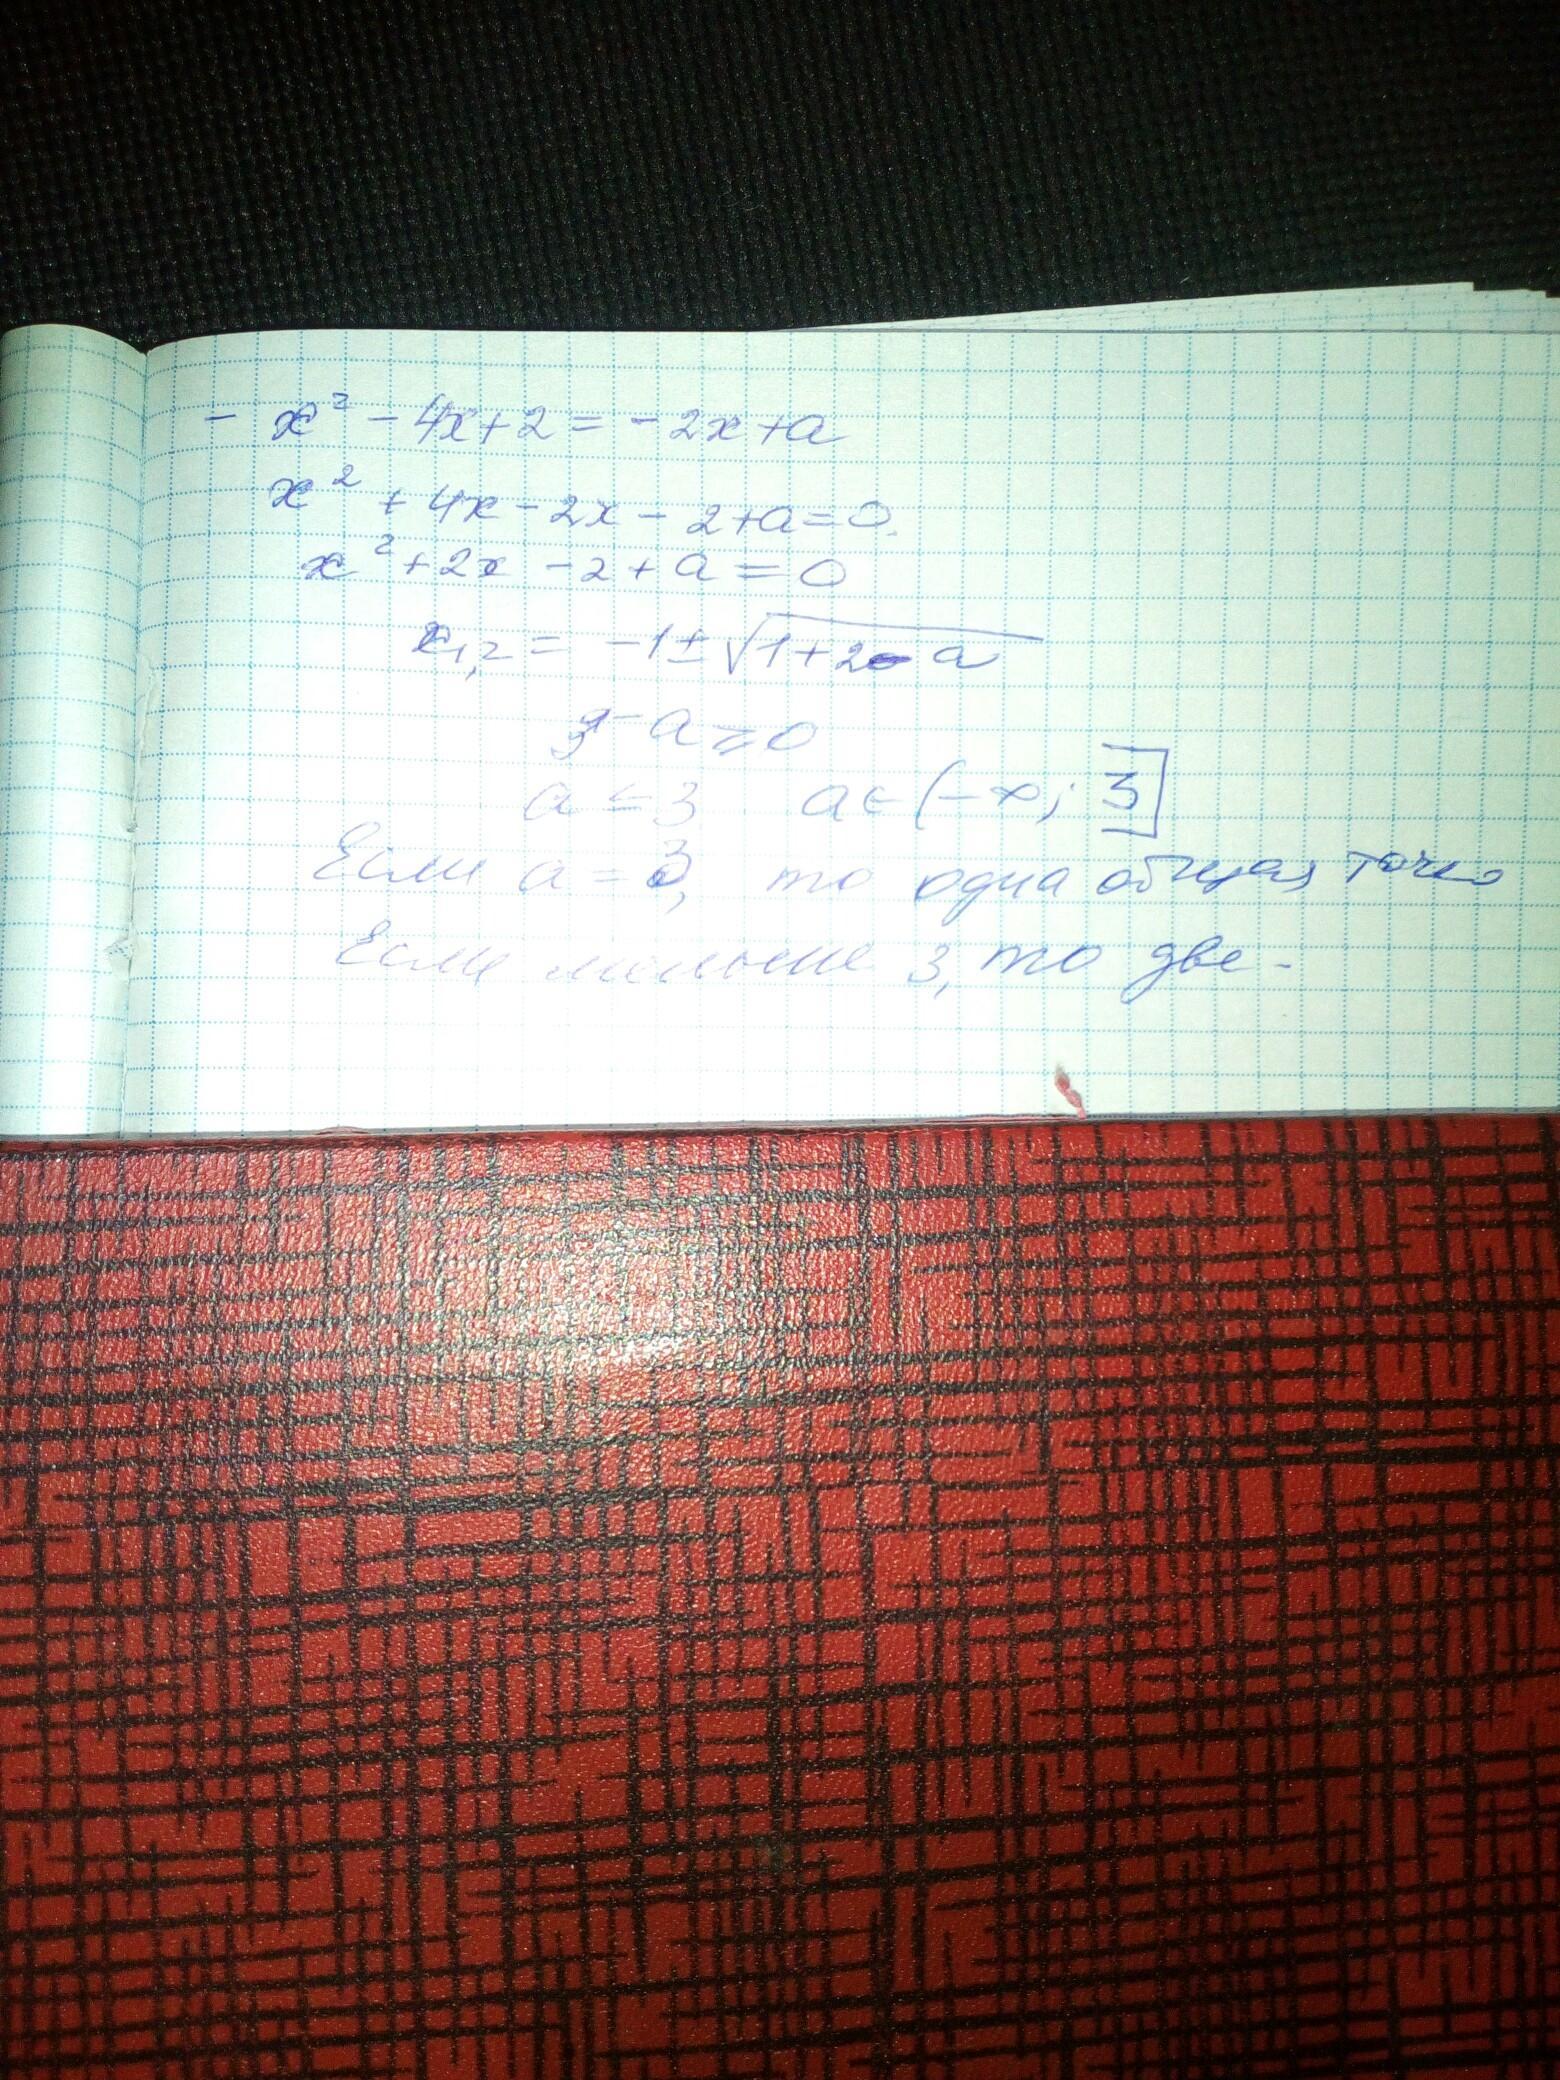 - x² - 4x + 2 = - 2x + a
x² + 4x - 2x - 2 + a = 0.
x² + 2x - 2 + a = 0
x₁,₂ = -1 ± √1 + 2 - a
3 - a ⩾ 0
a ≤ 3 a ∈ (-∞; 3]
Если a = 3, то одна общая точка
Если меньше 3, то две.